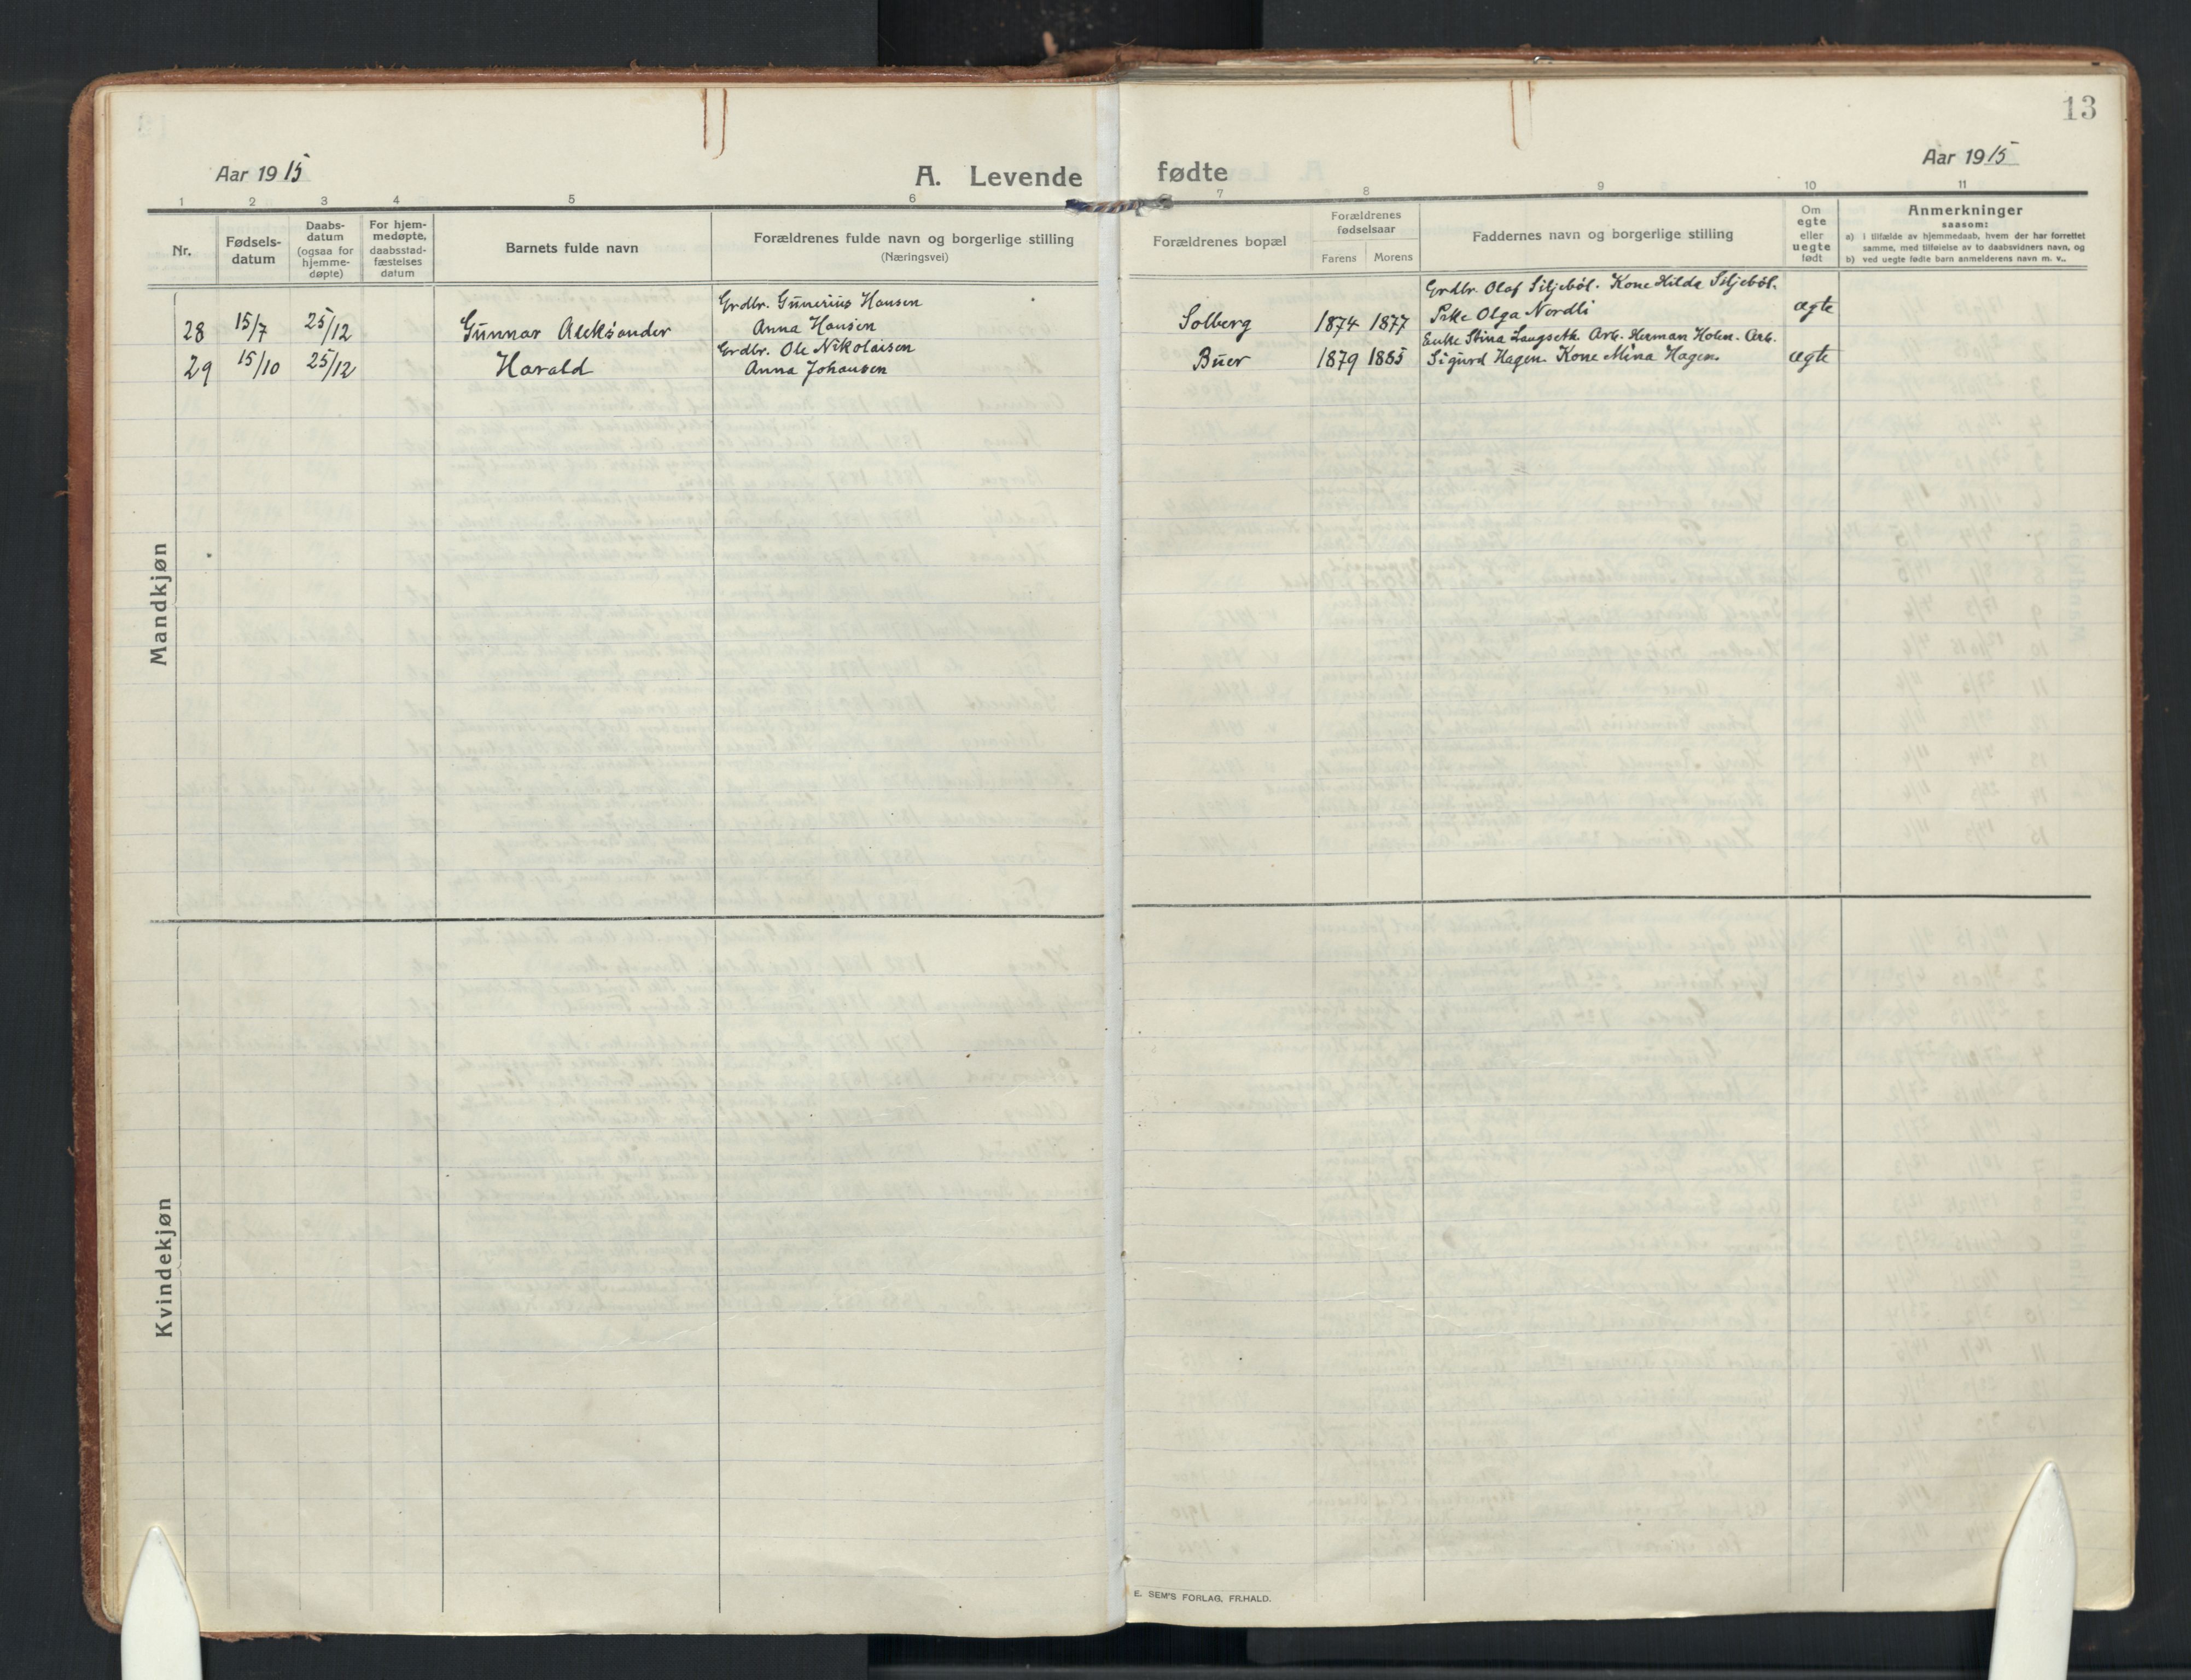 13
Aar 1915
A. Levende fødte
Aar 1915
1 2 3 4 5 6 7 8 9 10 11
Nr.
Fødsels-
datum
Daabs-
datum
(ogsaa for
hjemme-
døpte)
For hjem-
medøpte,
daabsstad-
fæstelses
datum
Barnets fulde navn
Forældrenes fulde navn og borgerlige stilling
(Næringsvei)
Forældrenes bopæl
Forældrenes
fødselsaar
Farens Morens
Faddernes navn og borgerlige stilling
Om
egte
eller
uegte
født
Anmerkninger
saasom:
a) i tilfælde av hjemmedaab, hvem der har forrettet
samme, med tilføielse av to daabsvidners navn, og
b) ved uegte fødte barn anmelderens navn m. v..
Mandkjøn
Grdbr. Gunerius Hansen
Grdbr. Olaf Siljeból. Kone Hilda Siljeból.
28 15/7 25/12 Gunnar Aleksander Anna Hansen Solberg 1874 1877 Pike Olga Nordli ægte
Grdbr. Ole Nikolaisen
Enke Stina Langseth. Arb. Herman Holen. Arb.
29 15/10 25/12 Harald Anna Johansen Buer 1879 1885 Sigurd Hagen. Kone Mina Hagen. ægte
Kvindekjøn
E. SEM'S FORLAG, FR.HALD.